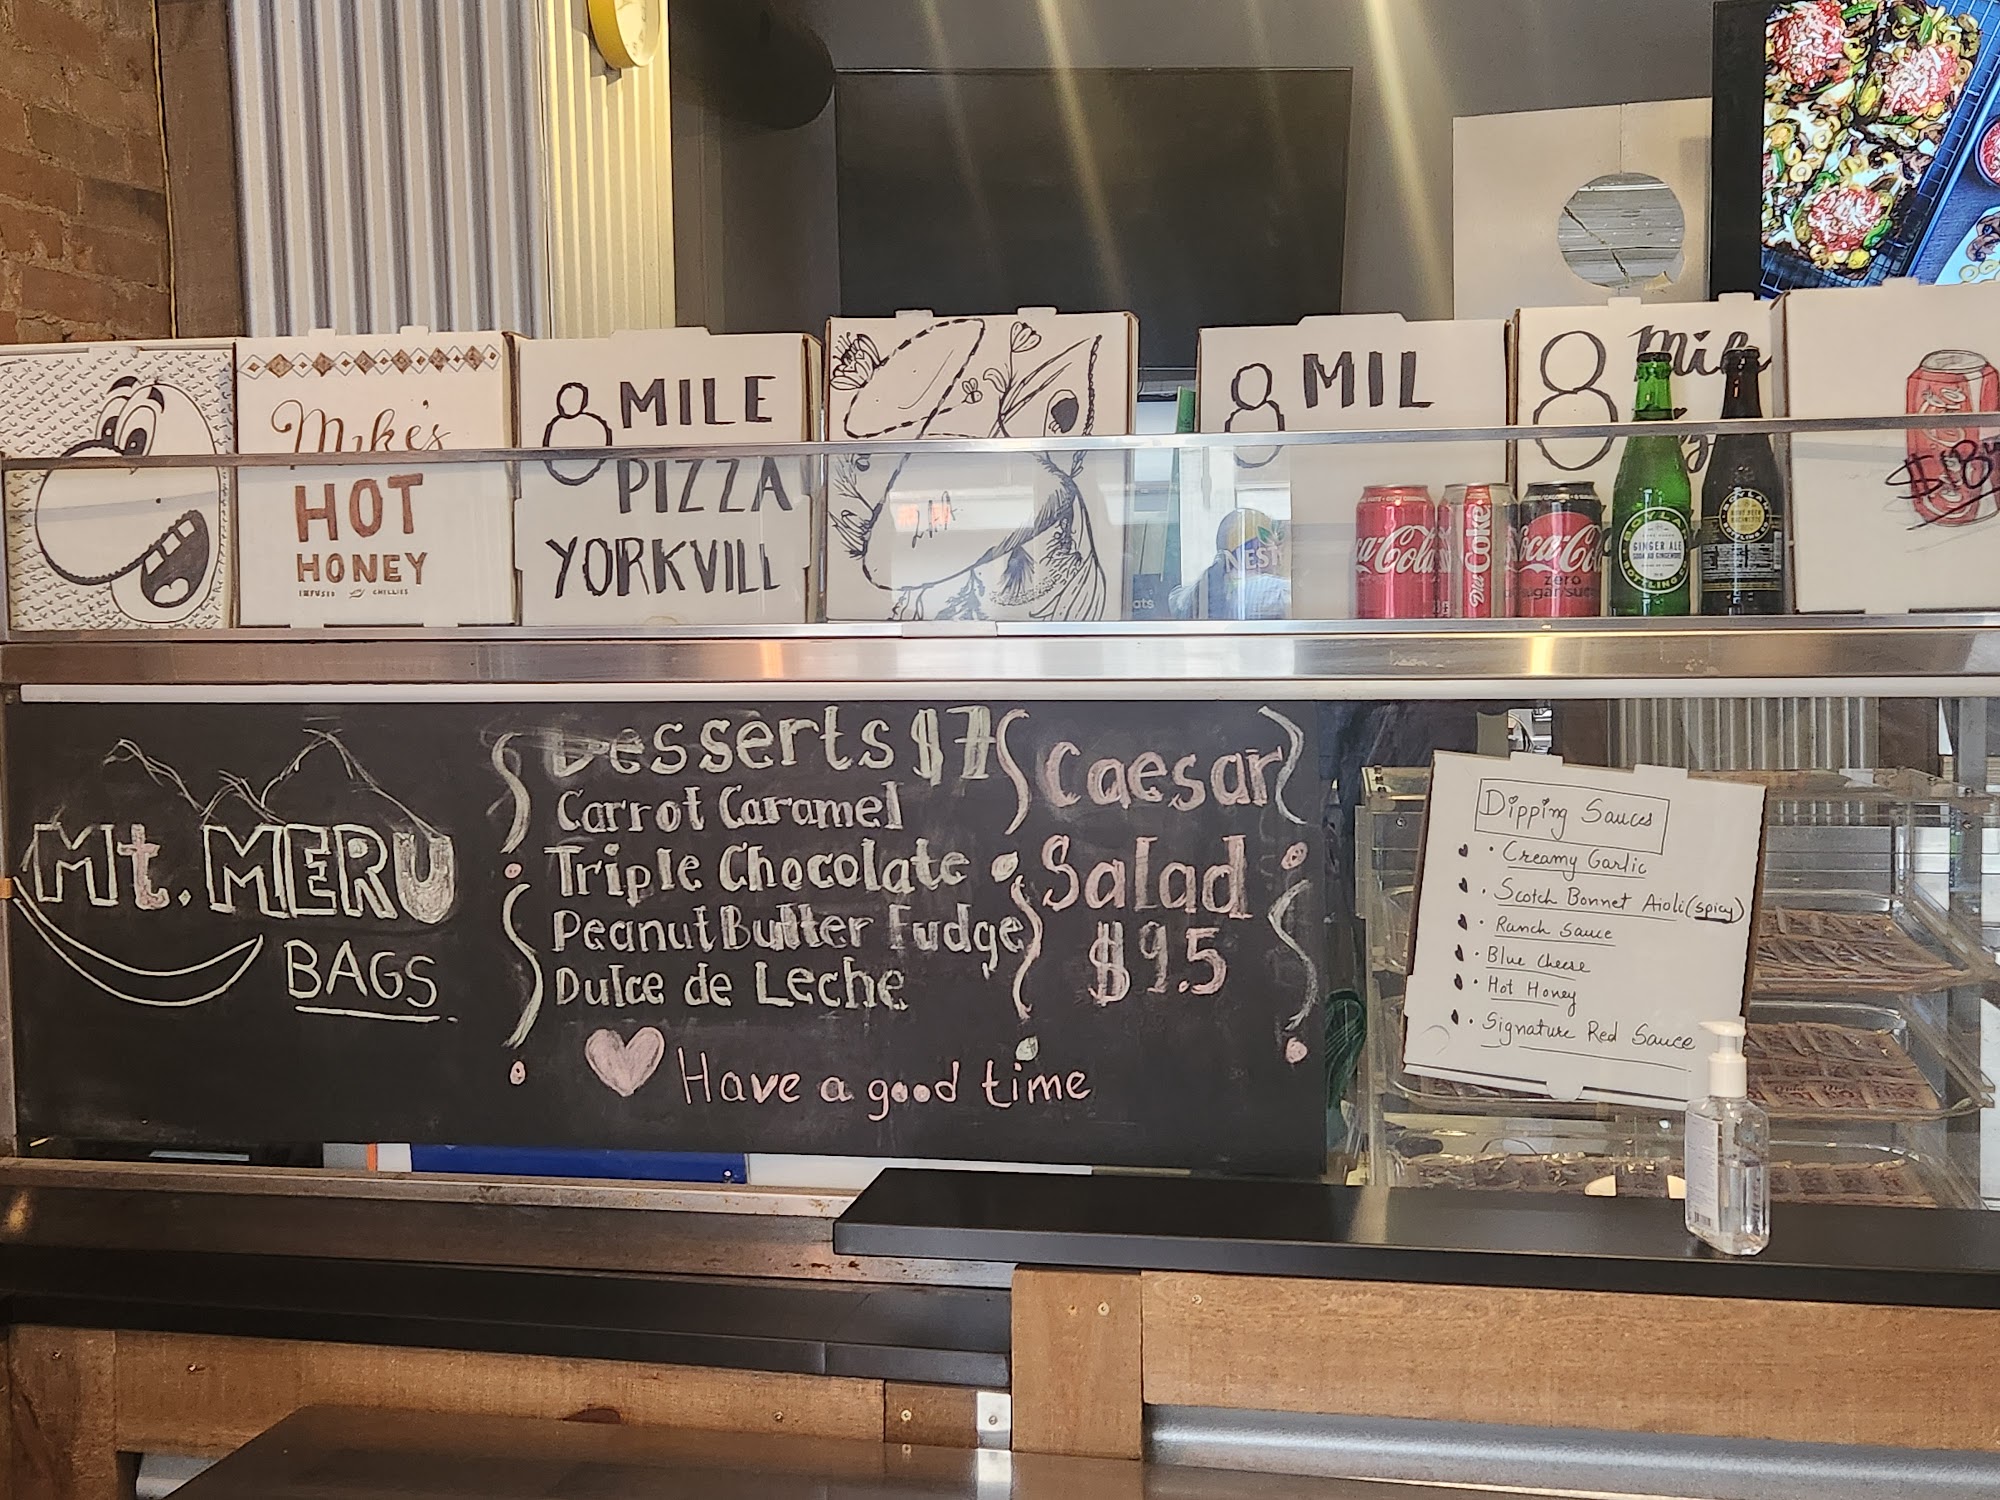 Mike's
HOT
HONEY
INFUSED CHILLIES
8 MILE
PIZZA
YORKVILL
8 MIL
8 Mile
Coca-Cola
Diet Coke
Coca-Co
zero
BOYLAN
GINGER ALE
BOTTLING
Mt. MERU
BAGS
Desserts $7
Carrot Caramel
Triple Chocolate
Peanut Butter Fudge
Dulce de Leche
Have a good time
Caesar
Salad
$9.5
Dipping Sauces
• Creamy Garlic
• Scotch Bonnet Aioli (spicy)
• Ranch Sauce
• Blue Cheese
• Hot Honey
• Signature Red Sauce